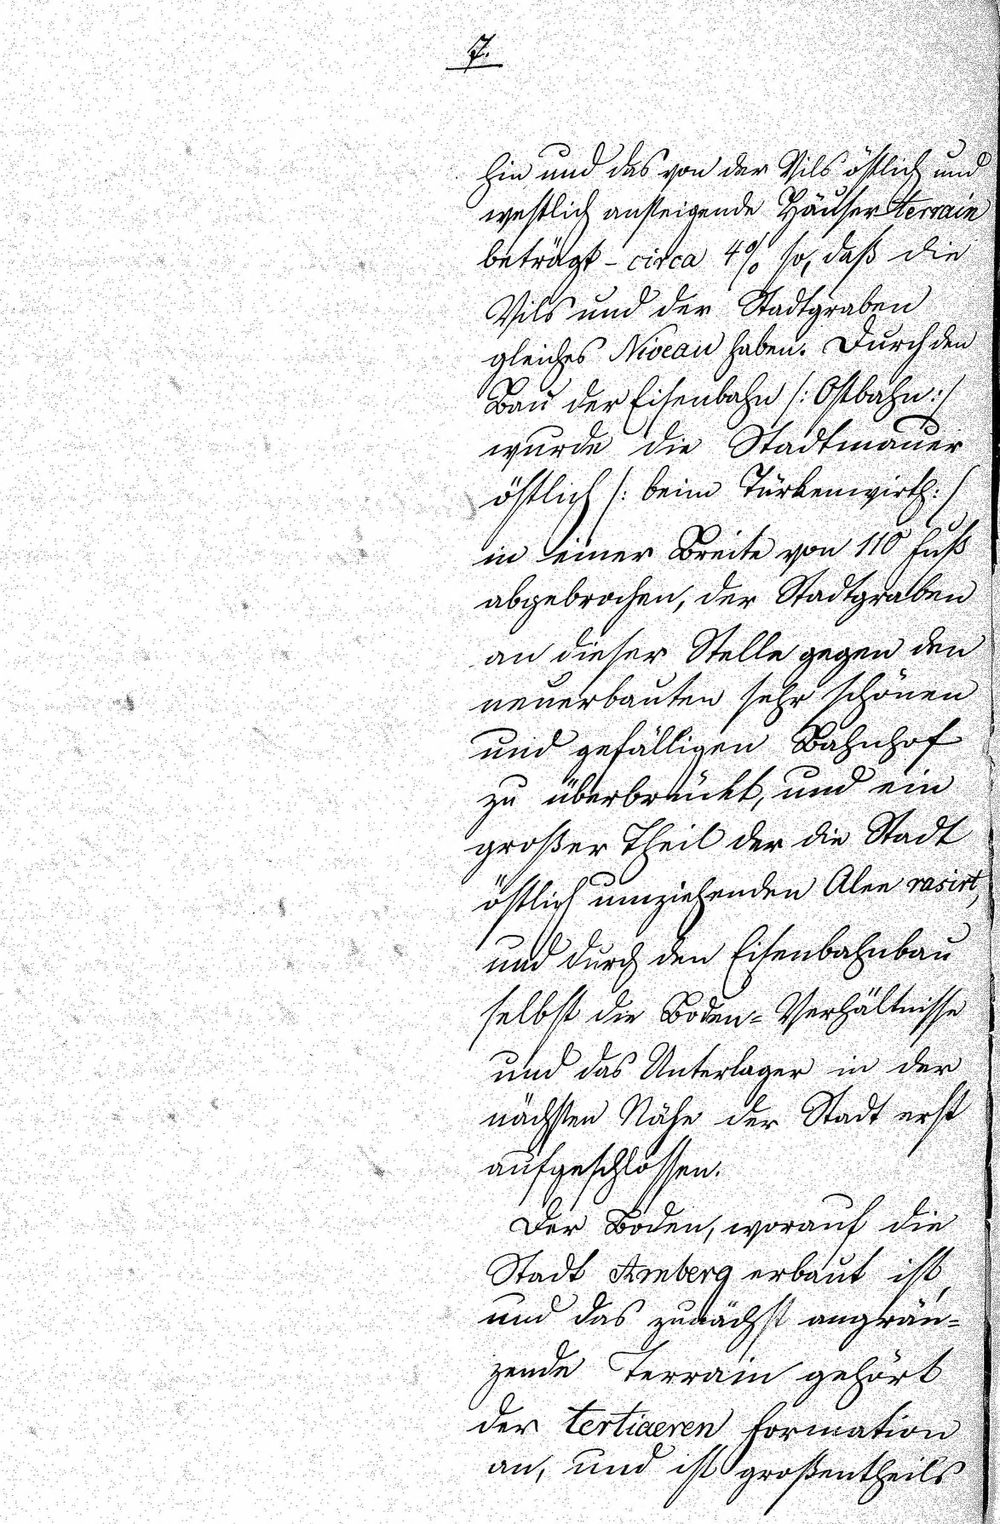 7.
hin und das von der Vils östlich und
westlich ansteigende Häuser terrain
beträgt - circa 4% so, daß die
Vils und der Stadtgraben
gleiches Niveau haben. Durch den
Bau der Eisenbahn /: Ostbahn :/
wurde die Stadtmauer
östlich /: beim Türkenwirth :/
in einer Breite von 110 Fuß
abgebrochen, der Stadtgraben
an dieser Stelle gegen den
neuerbauten sehr schönen
und gefälligen Bahnhof
zu überbrückt, und ein
großer Theil der die Stadt
östlich umziehenden Alee rasirt,
und durch den Eisenbahnbau
selbst die Boden= Verhältnisse
und das Unterlager in der
nächsten Nähe der Stadt erst
aufgeschlossen.
Der Boden, worauf die
Stadt Amberg erbaut ist,
und das zunächst angrän=
zende Terrain gehört
der tertiaeren Formation
an, und ist großentheils